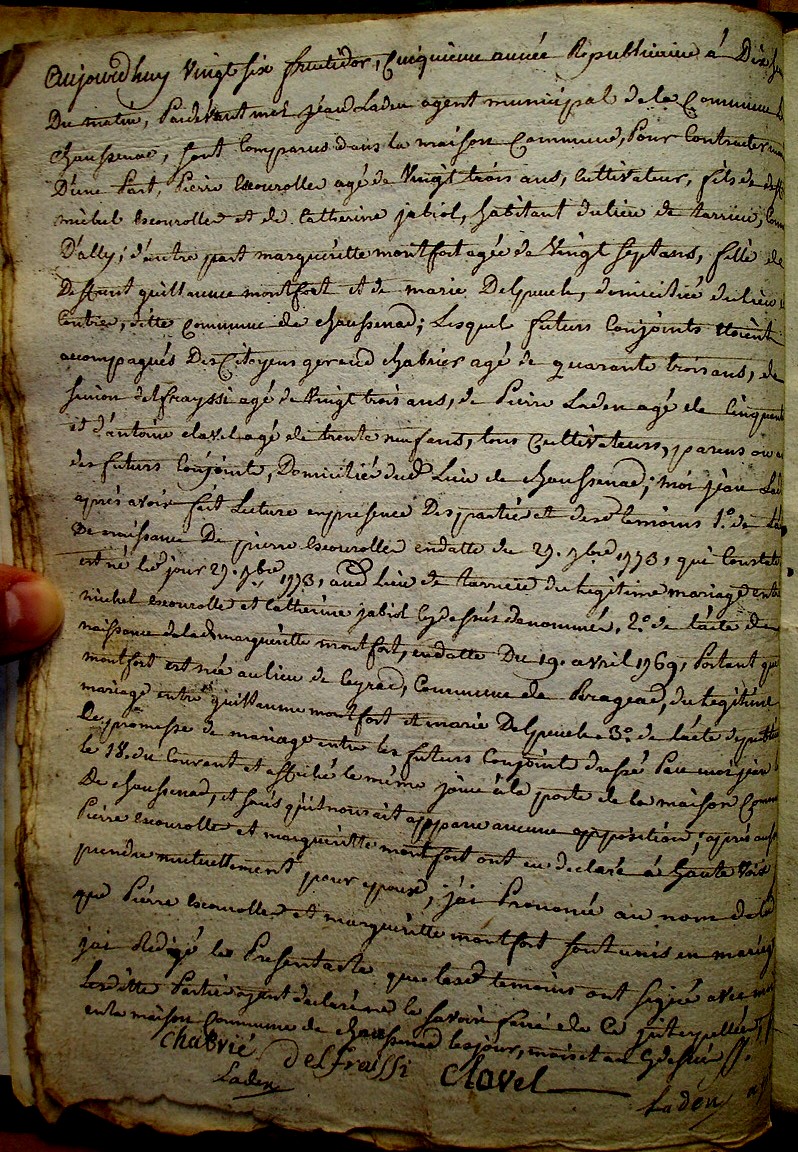 aujourd'huy vingt six fructidor, cinquieme année Republicaine à Dix
Du matin, Pardevant moi jean Laden agent municipal de la Commune
chaussenac, sont Comparus dans la maison Commune, Pour Contracter
D'une Part, Pierre Escourolle agé de Vingt trois ans, Cultivateur, fils de
michel Escourolle et de Catherine jabiol, habitant du lieu de
D'ally; d'autre part marguéritte montfort agée de Vingt sept ans, fille de
Deffunt guillaume montfort et de marie Delpuech, domiciliée du lieu
Contres, ditte Commune de chaussenac; Lesquels futurs Conjoints étoient
acompagnés Des Citoyens geraud chabrier agé de quarante trois ans, de
Simon delfrayssi agé de Vingt trois ans, de Pierre Laden agé de Cinquante
et d'antoine clavel agé de trente neuf ans, tous Cultivateurs, parens ou
des futurs Conjoints, Domiciliés dud Lieu de chaussenac; moi jean
après avoir fait Lecture en presence Des parties et desd temoins 1.° de
De naissance De pierre Escourolle en datte du 29. 7bre 1773, qui Constate
est né led jour 29. 7bre 1773, aud Lieu de du legitime mariage entre
michel Escourolle et Catherine jabiol Cy dessus denommés, 2.° de l'acte de
naissance de lad marguéritte montfort, en datte Du 19. avril 1769, Portant que
montfort est née au lieu de Ceyrac, Commune de Brageac, du legitime
mariage entre guillaume montfort et marie Delpuech 3.° de l'acte de
De promesse de mariage entre les futurs Conjoints dressé Par moi jean
le 18. du Courant et affiché le même jour à la porte de la maison
De chaussenac, et sans qu'il nous ait apparu aucune opposition; après
Pierre Escourolle et marguéritte montfort ont eu declaré à haute Voix
prendre mutuellement pour epoux, j'ai Prononcé au nom de la
que Pierre Escourolle et marguéritte montfort sont unis en mariage
j'ai Redigé le Present acte que lesd temoins ont signé avec moi
Lesditte Parties ayant declaré ne le savoir faire de Ce jnterpellées,
en la maison Commune de chaussenac les jour, mois et an Cy dessus
chabrié delfraissi clavel
Laden Laden